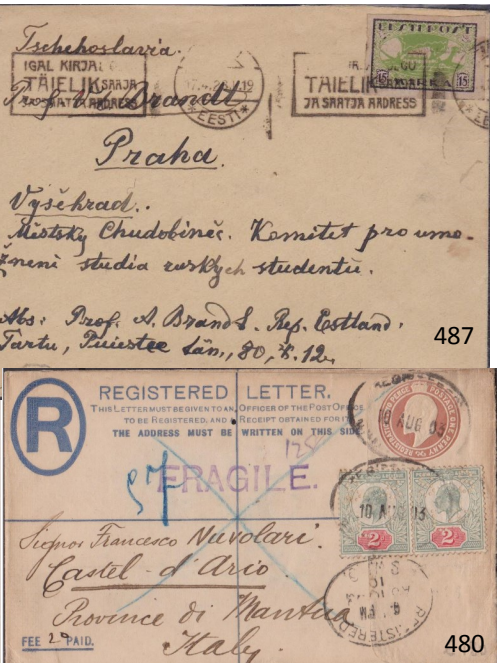 Tschehoslavia.
EESTI POST
15 15
IGAL KIRJAL
TÄIELIK SAAJA
JA SAATJA AADRESS
EESTI
TÄIELIK
JA SAATJA AADRESS
EESTI
Brandt
Praha.
Vyšehrad.
Městsky Chudobinec. Komitet pro umo-
žneni studia ruskych studentů.
Abs: Prof. A. Brandt. Rep. Estland.
Tartu, Puiestee tän., 80, k. 12.
487
R
REGISTERED LETTER.
THIS LETTER MUST BE GIVEN TO AN OFFICER OF THE POST OFFICE
TO BE REGISTERED, AND A RECEIPT OBTAINED FOR IT.
THE ADDRESS MUST BE WRITTEN ON THIS SIDE.
10 AUG 03
FRAGILE.
10 AUG 03
2D 2D
Signor Francesco Nuvolari
Castel-d'Ario
Province di Mantua
Italy
REGISTERED
FEE 2d PAID.
480